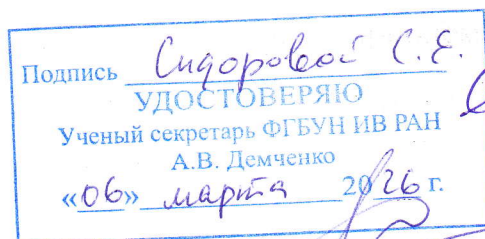 Подпись Сидоровой С.Е.
УДОСТОВЕРЯЮ
Ученый секретарь ФГБУН ИВ РАН
А.В. Демченко
«06» марта 2026 г.